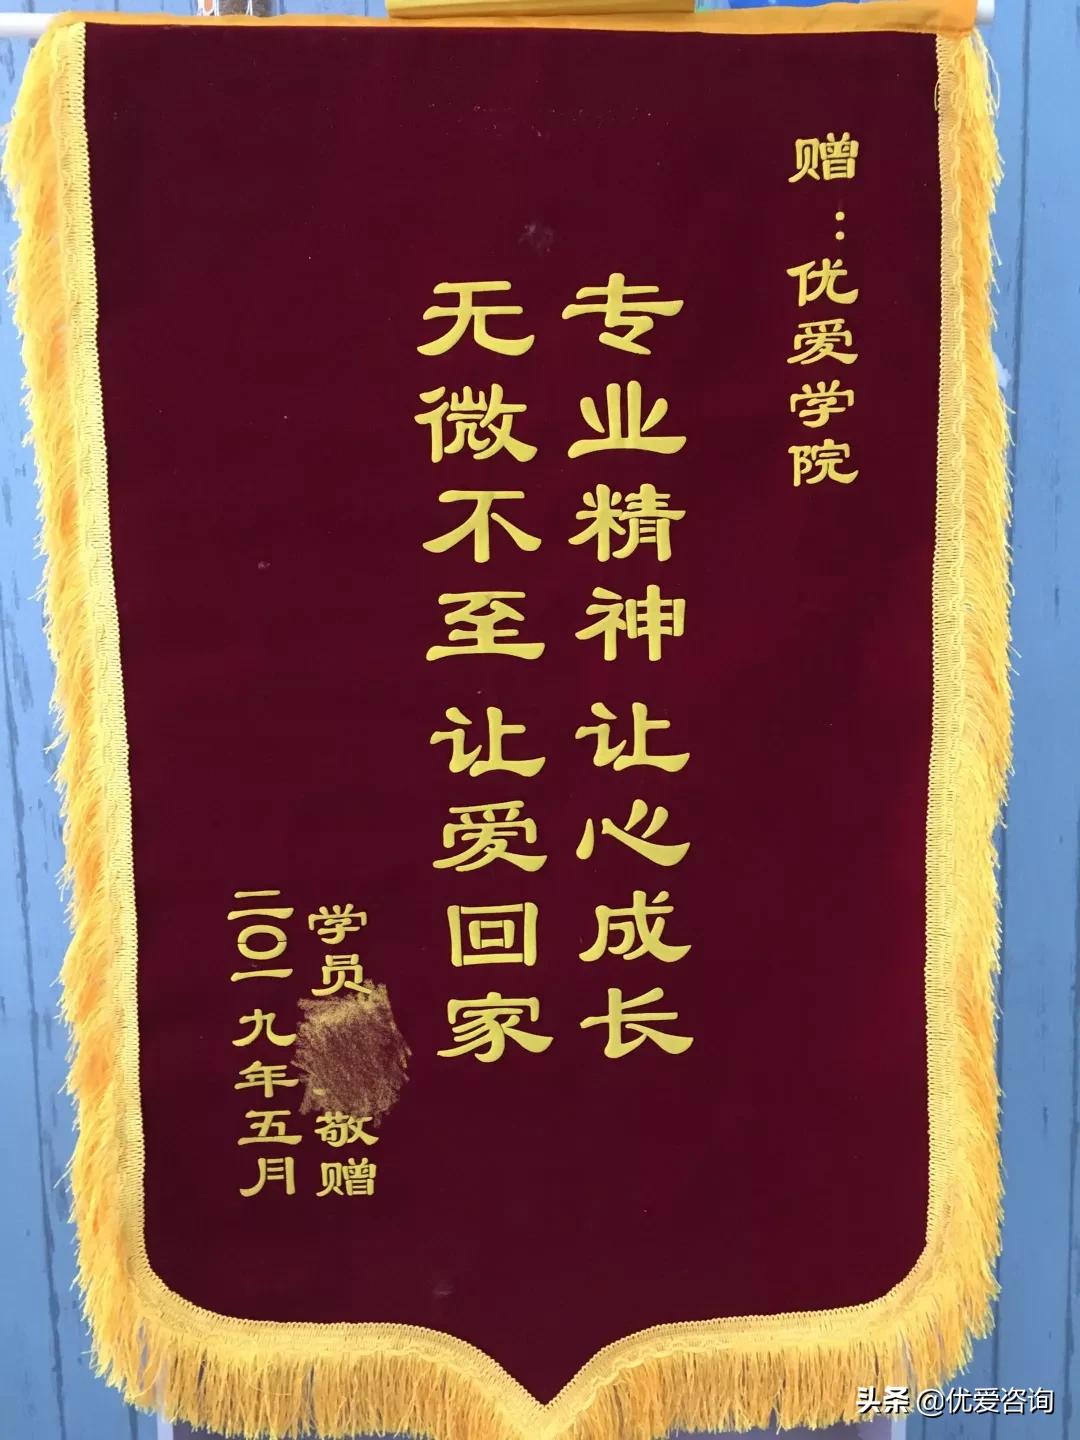 赠：优爱学院
专业精神让心成长
无微不至让爱回家
学员
敬赠
二〇一九年五月
头条 @优爱咨询